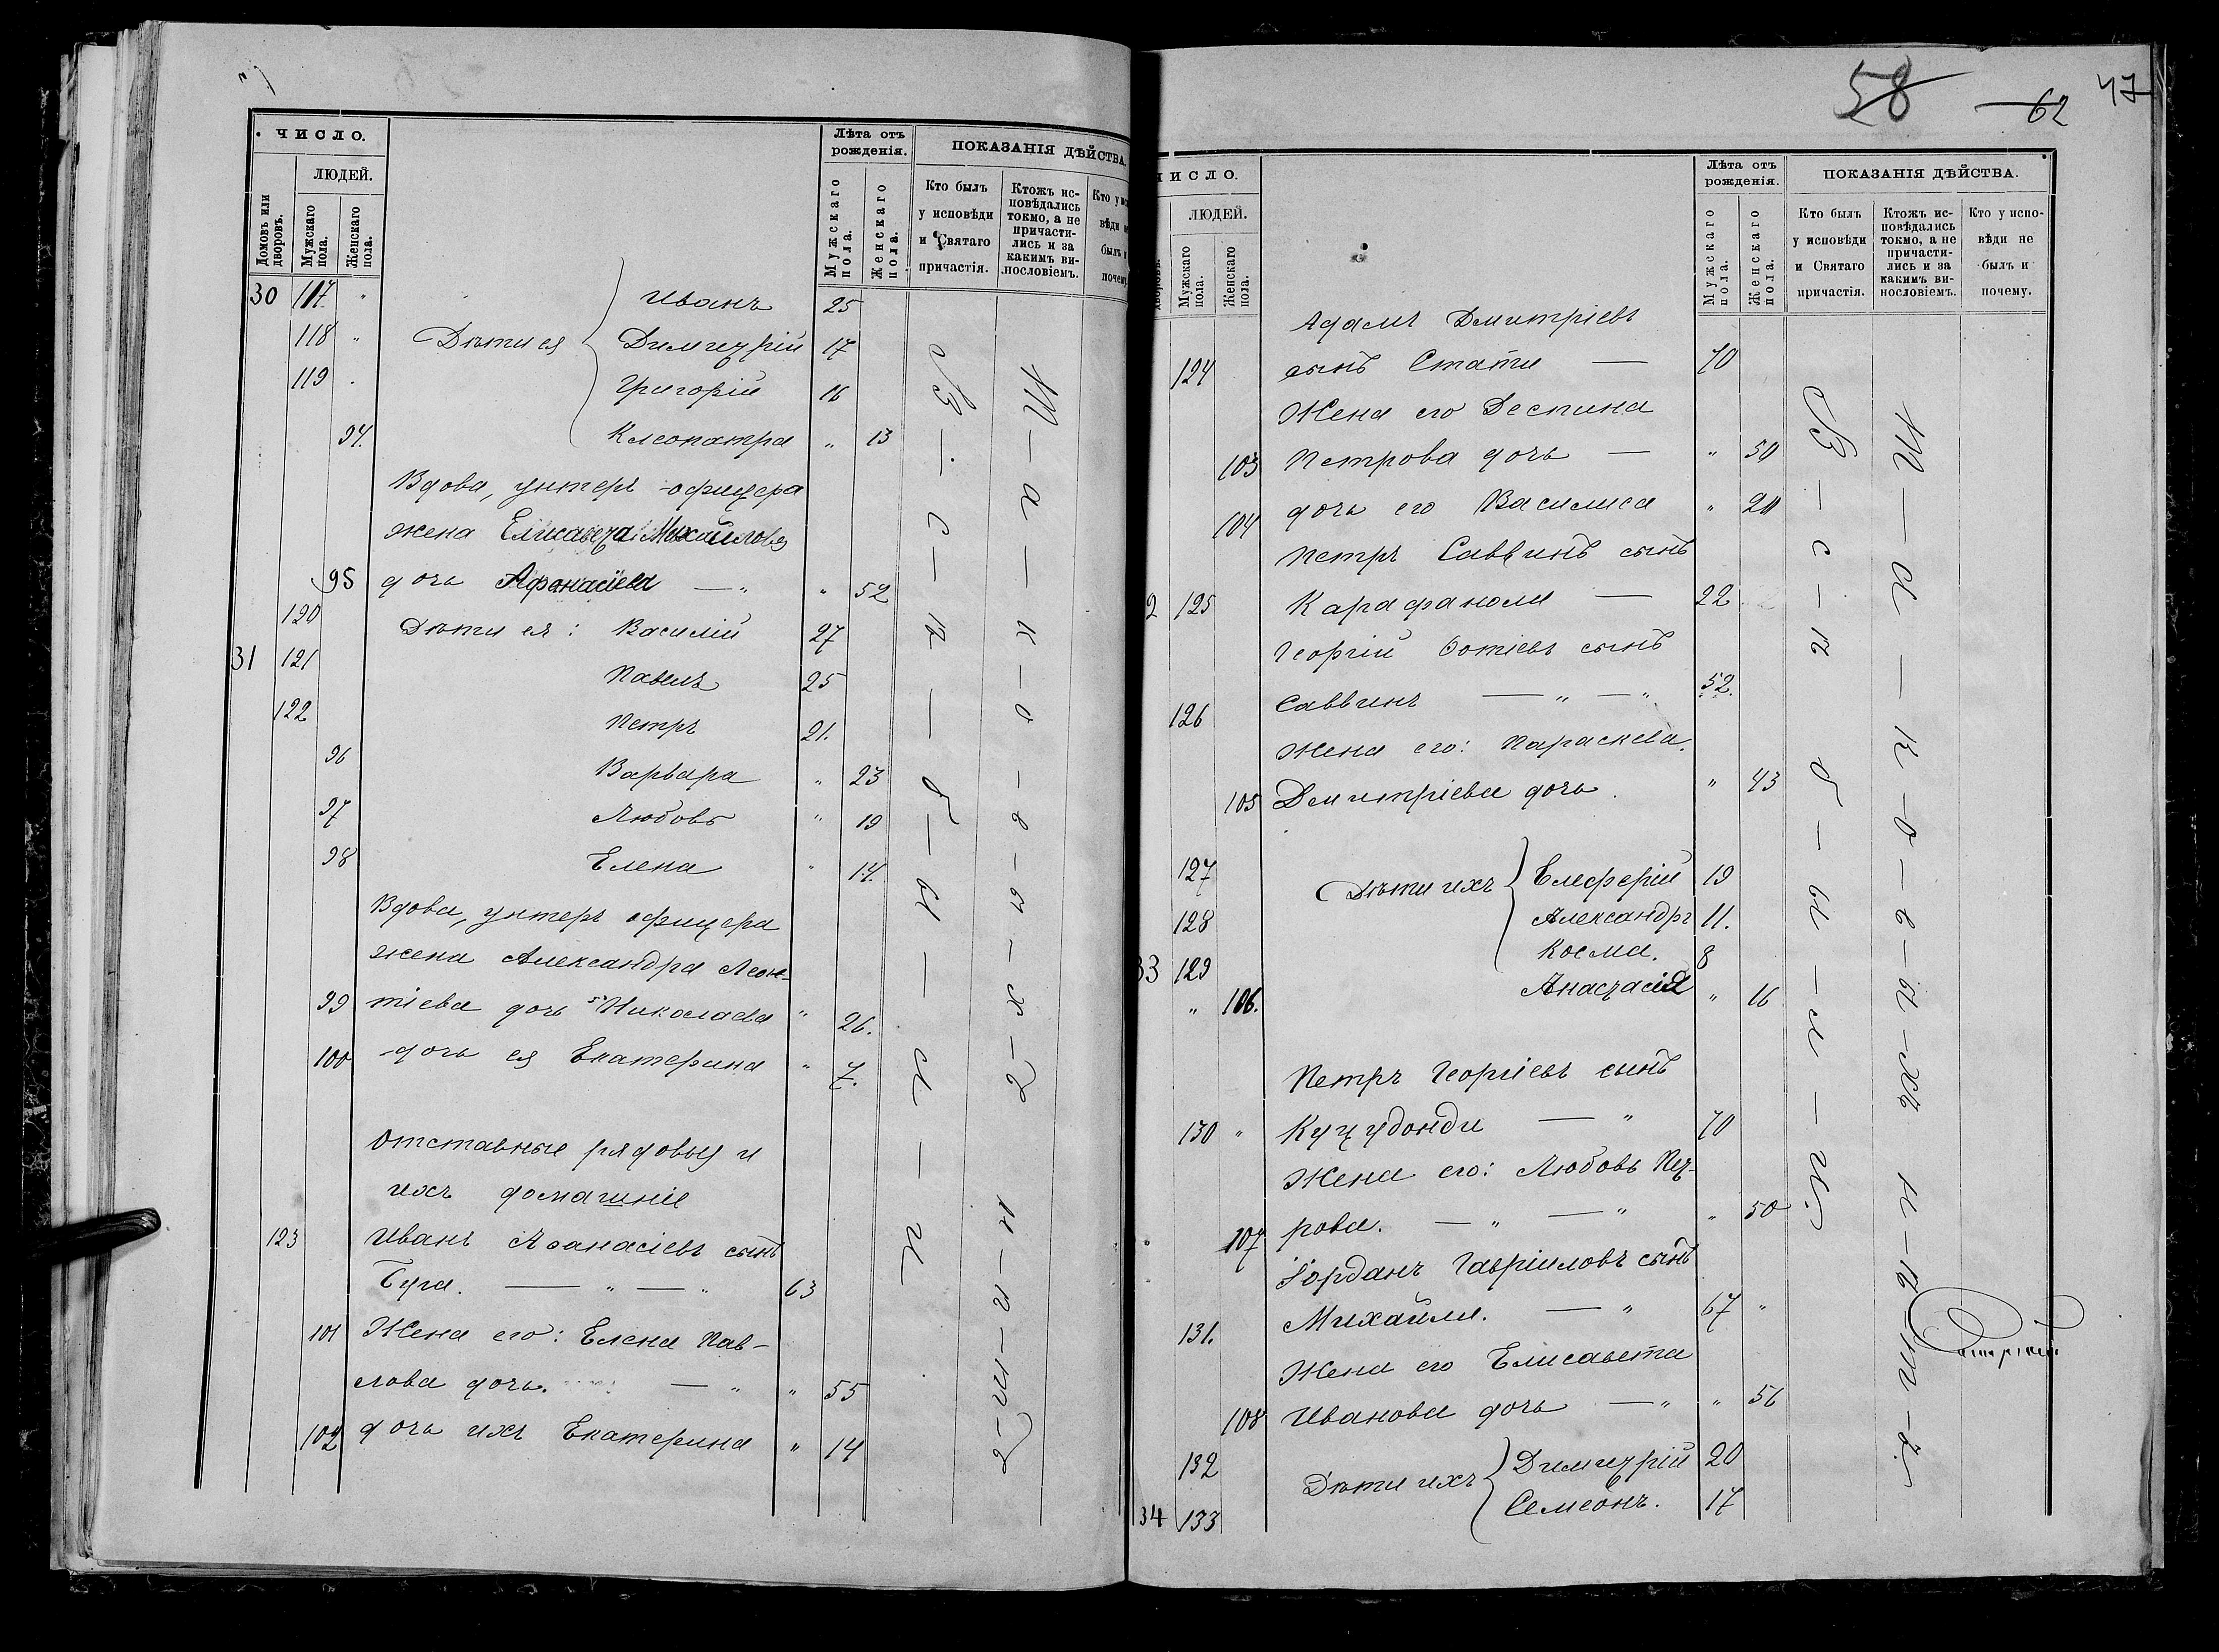 ЧИСЛО.
Лѣта отъ рожденія.
ПОКАЗАНІЯ ДѢЙСТВА.
ЛЮДЕЙ.
Домовъ или дворовъ.
Мужскаго пола.
Женскаго пола.
Мужскаго пола.
Женскаго пола.
Кто былъ у исповѣди и Святаго причастія.
Ктожъ исповѣдались токмо, а не причастились и за какимъ винословіемъ.
30 117 " Иванъ 25
118 " Дѣти ея Димитрій 17
119 . Григорій 16
94. Клеопатра " 13
Вдова, унтеръ-офицера
жена Елисавета Михайлова
95 дочь Афанасіева — " " 52
120 Дѣти ея: Василій 27
31 121 Павелъ 25
122 Петръ 21.
96 Варвара " 23
97 Любовь " 19
98 Елена " 14.
Вдова, унтеръ офицера
жена Александра Леон-
99 тіева дочь Николаева " 26.
100 дочь ея Екатерина " 7.
Отставные рядовыя и
ихъ домашніе
123 Иванъ Аѳанасіевъ сынъ
Буга. — " — " 63
101 Жена его: Елена Пав-
лова дочь. — " " 55
102 дочь ихъ Екатерина " 14
58 62 47
ЧИСЛО.
Лѣта отъ рожденія.
ПОКАЗАНІЯ ДѢЙСТВА.
ЛЮДЕЙ.
Мужскаго пола.
Женскаго пола.
Мужскаго пола.
Женскаго пола.
Кто былъ у исповѣди и Святаго причастія.
Ктожъ исповѣдались токмо, а не причастились и за какимъ винословіемъ.
Кто у исповѣди не былъ и почему.
Адамъ Дмитріевъ
124 сынъ Стати — 70
Жена его Деспина
103 Петрова дочь — " 50
104 дочь его Василиса " 20
Петръ Саввинъ сынъ
2 125 Карафаноли — 22
Георгій Фотіевъ сынъ
126 Саввинъ — " — " 52.
Жена его: Параскева
105 Димитріева дочь. " 43
127 Дѣти ихъ Елефѳерій 19
128 Александръ 11.
33 129 Косма. 8
" 106. Анастасія " 16
Петръ Георгіевъ сынъ
130 " Куцудонди — " 70
Жена его: Любовь Пет-
107 рова. — " — " " 50
Іорданъ Гавріиловъ сынъ
131. Михаили. — " 67 "
Жена его Елисавета
108 Иванова дочь — " " 56
132 Дѣти ихъ Димитрій 20
34 133 Семеонъ. 17